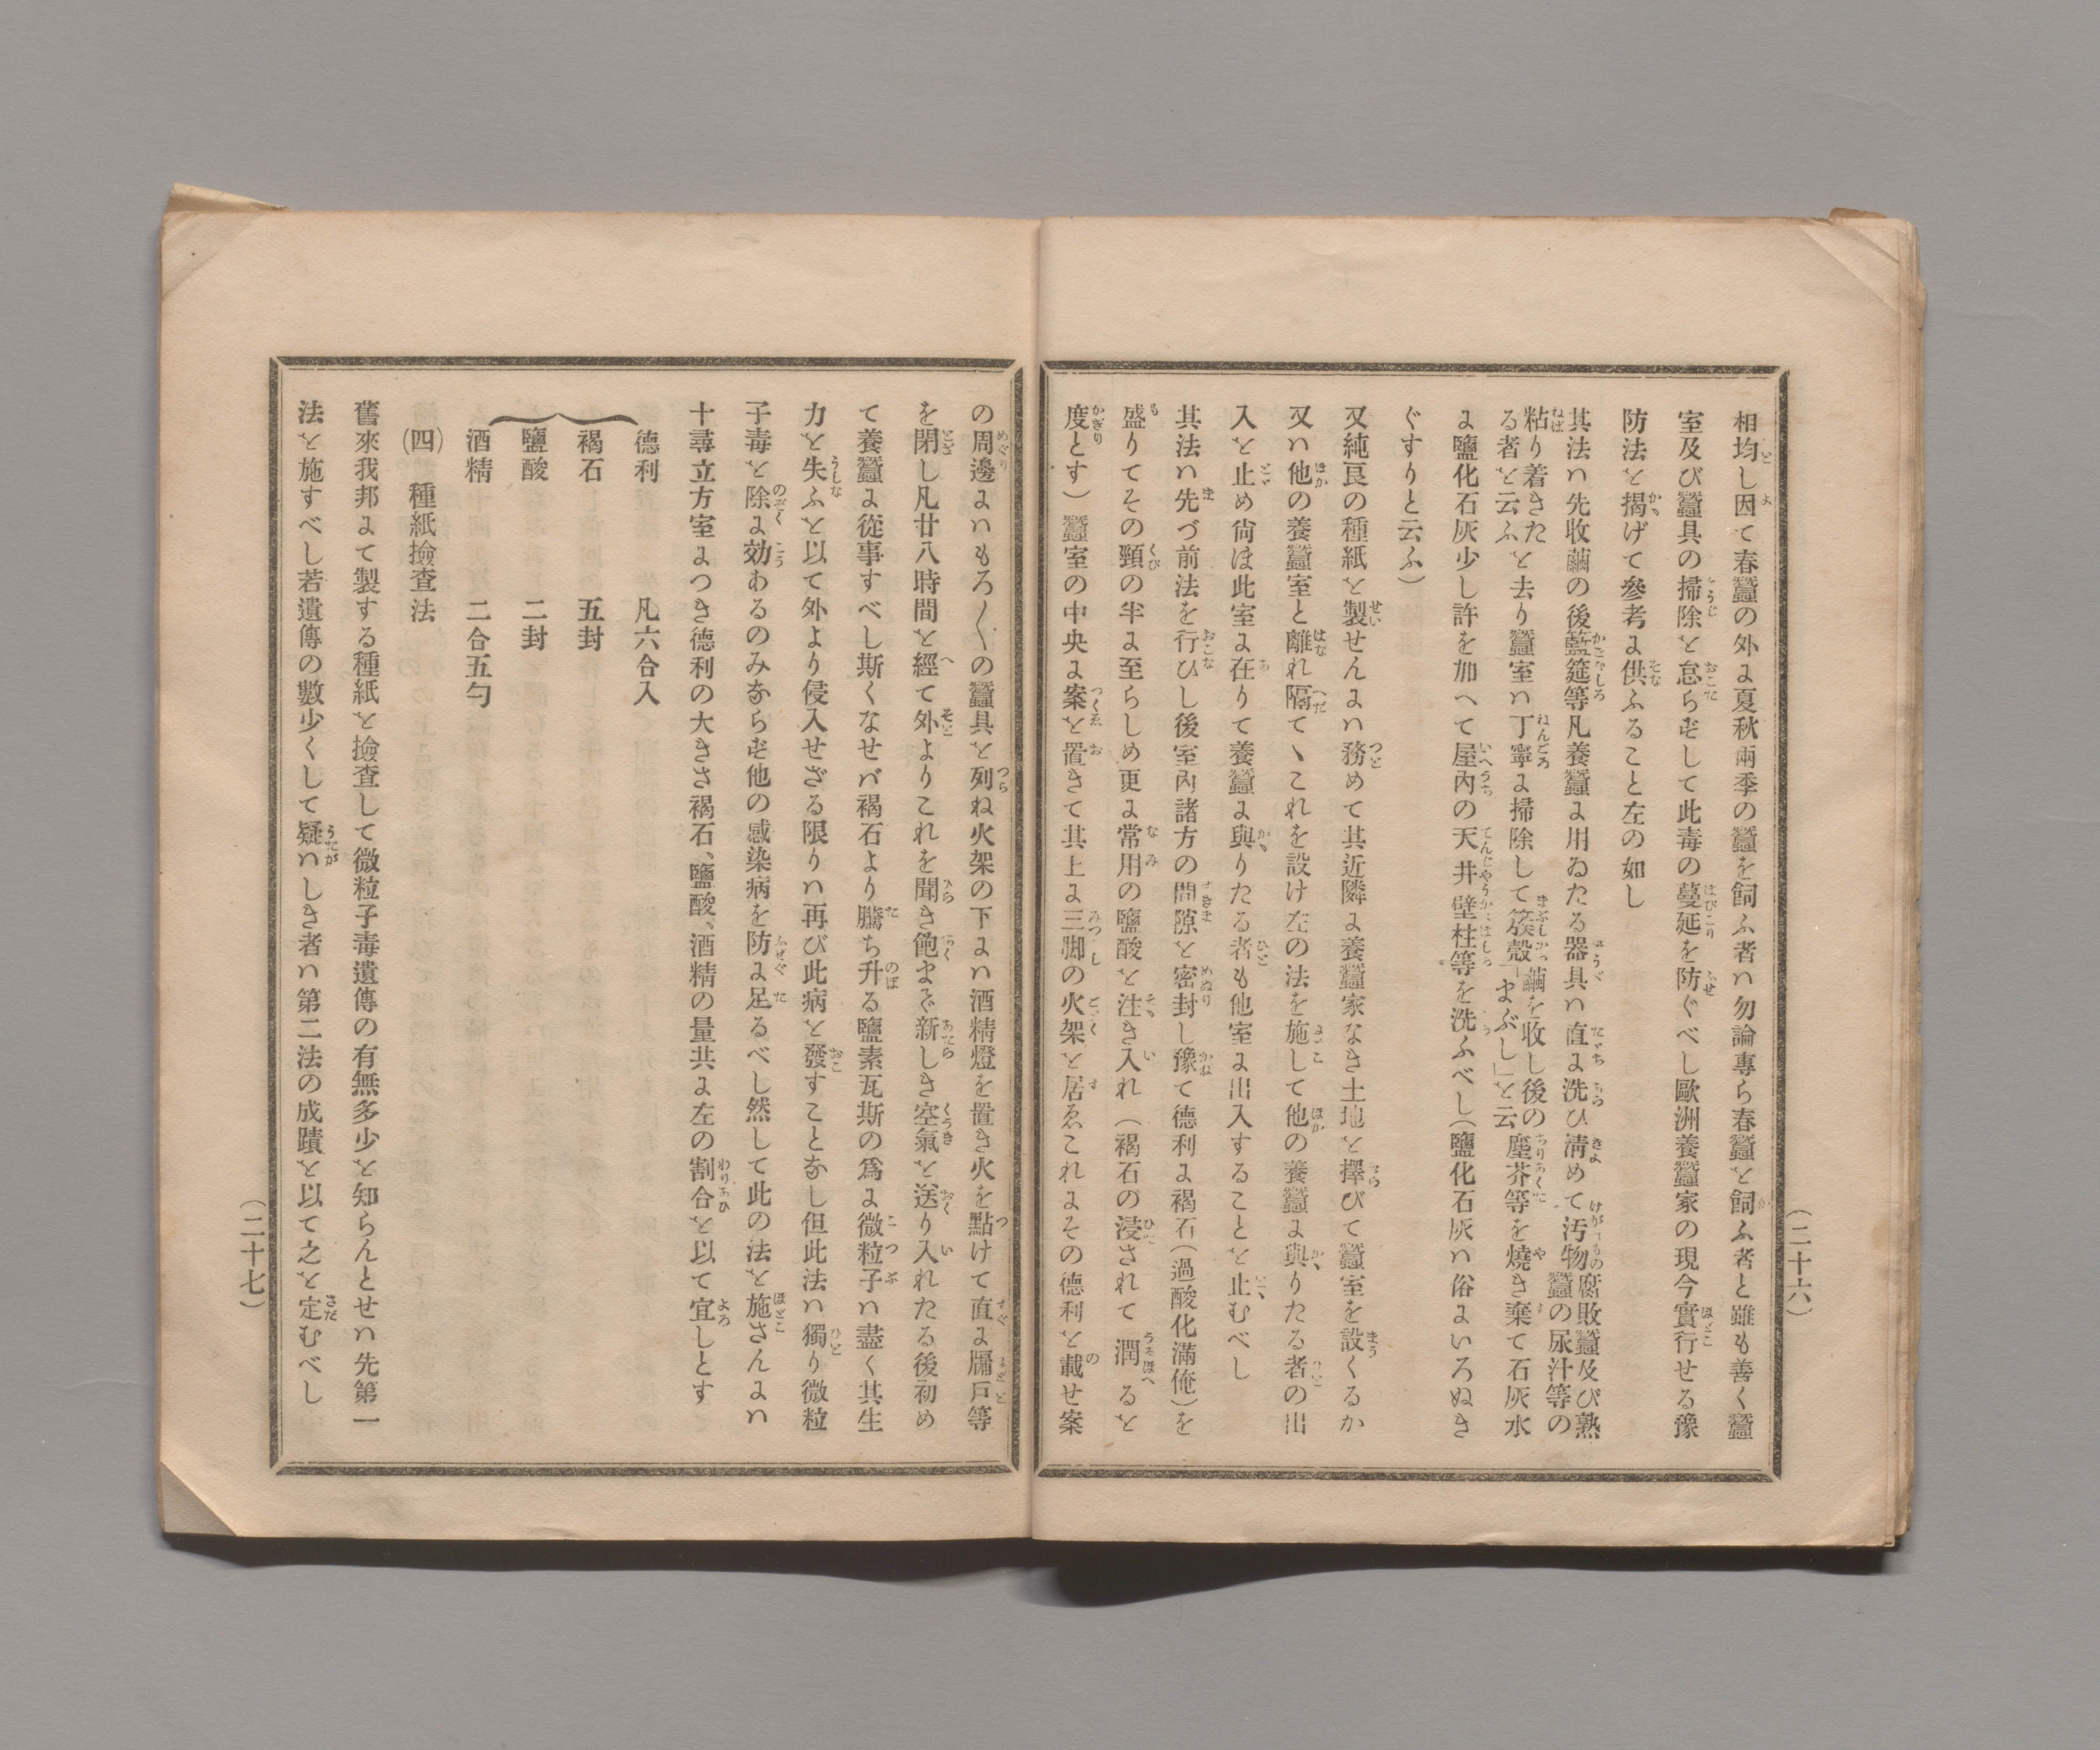 相均し因て春蠶の外に夏秋兩季の蠶を飼ふ者ハ勿論專ら春蠶を飼ふ者と雖も善く蠶
室及び蠶具の掃除を怠らずして此毒の蔓延を防ぐべし歐洲養蠶家の現今實行せる豫
防法を揭げて參考に供ふること左の如し
其法ハ先收繭の後籃筵等凡養蠶に用ゐたる器具ハ直に洗ひ淸めて汚物腐敗蠶及び熟蠶の尿汁等の
粘り着きたる者を云ふを去り蠶室ハ丁寧に掃除して簇殼「まぶし」を云繭を收し後の塵芥等を燒き棄て石灰水
に鹽化石灰少し許を加へて屋內の天井壁柱等を洗ふべし(鹽化石灰ハ俗にいろぬき
ぐすりと云ふ)
又純良の種紙を製せんにハ務めて其近隣に養蠶家なき土地を擇びて蠶室を設くるか
又ハ他の養蠶室と離れ隔てゝこれを設け左の法を施して他の養蠶に與りたる者の出
入を止め尙ほ此室に在りて養蠶に與りたる者も他室に出入することを止むべし
其法ハ先づ前法を行ひし後室內諸方の間隙を密封し豫て德利に褐石(過酸化滿俺)を
盛りてその頸の半に至らしめ更に常用の鹽酸を注き入れ(褐石の浸されて潤るを
度とす)蠶室の中央に案を置きて其上に三脚の火架を居ゑこれにその德利を載せ案
(二十六)
の周邊にハもろ〱の蠶具を列ね火架の下にハ酒精燈を置き火を點けて直に牖戶等
を閉し凡廿八時間を經て外よりこれを聞き飽まで新しき空氣を送り入れたる後初め
て養蠶に從事すべし斯くなせバ褐石より騰ち升る鹽素瓦斯の爲に微粒子ハ盡く其生
力を失ふを以て外より侵入せざる限りハ再び此病を發すことなし但此法ハ獨り微粒
子毒を除に効あるのみならず他の感染病を防に足るべし然して此の法を施さんにハ
十尋立方室につき德利の大きさ褐石、鹽酸、酒精の量共に左の割合を以て宜しとす
德利 凡六合入
褐石 五封
鹽酸 二封
酒精 二合五勺
(四) 種紙撿查法
舊來我邦にて製する種紙を撿查して微粒子毒遺傳の有無多少を知らんとせハ先第一
法を施すべし若遺傳の數少くして疑ハしき者ハ第二法の成蹟を以て之を定むべし
(二十七)